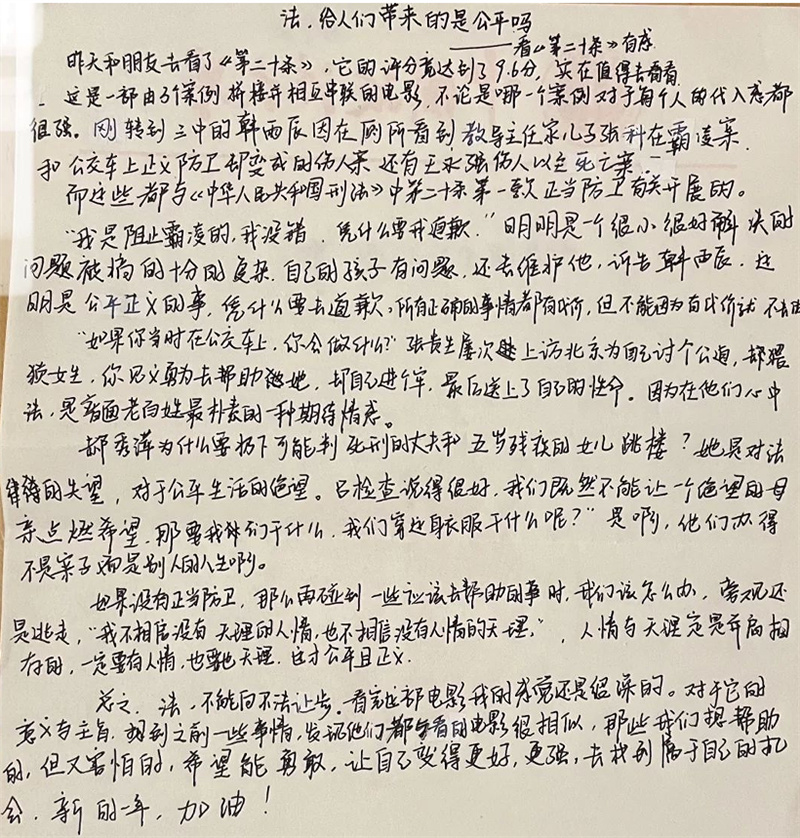 法,给人们带来的是公平吗
——看《第二十条》有感
昨天和朋友去看了《第二十条》,它的评分竟达到了9.6分,实在值得去看看
这是一部由3个案例拼接并相互串联的电影,不论是哪一个案例对于每个人的代入感都
很强。刚转到三中的韩雨辰因在厕所看到教导主任家儿子张科在霸凌案.
和公交车上正义防卫却变成的伤人案还有王永强伤人以至死亡案
而这些都与《中华人民共和国刑法》中第二十条第一款正当防卫有关开展的。
“我是阻止霸凌的,我没错,凭什么要我道歉.”明明是一个很小很好解决的
问题被搞的十分的复杂.自己的孩子有问题,还去维护他,诉告韩雨辰.这
明是公平正义的事,凭什么要去道歉,所有正确的事情都有代价,但不能因为有代价就不去
“如果你当时在公交车上,你会做什么?”张贵生屡次上访北京为自己讨个公道,却猥
狻女生,你见义勇为去帮助她,却自己进牢,最后送上了自己的性命。因为在他们心中
法,是老百姓最朴素的一种期待情感。
郝秀萍为什么要扔下可能判死刑的丈夫和五岁残疾的女儿跳楼?她是对法
律的失望,对于公平生活的绝望。吕检查说得很好,我们既然不能让一个绝望的母
亲点燃希望,那要我们干什么,我们穿这身衣服干什么呢?”是啊,他们办得
不是案子而是别人的人生啊。
如果没有正当防卫,那么再碰到一些应该去帮助的事时,我们该怎么办,旁观还
是逃走,“我不相信没有天理的人情,也不相信没有人情的天理,”,人情与天理定是并肩相
存的,一定要有人情,也要天理.这才公平且正义.
总之,法,不能向不法让步.看完这部电影我的感觉还是很深的。对于它的
意义与主旨,想到之前一些事情,发现他们都与看的电影很相似,那些我们想帮助
的,但又害怕的,希望能勇敢,让自己变得更好,更强,去找到属于自己的机
会.新的一年,加油!